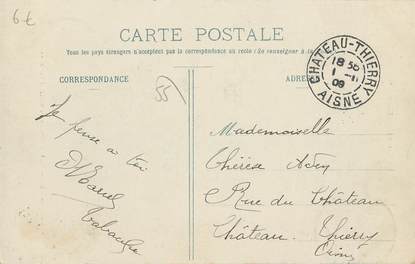 6€
CARTE POSTALE
Tous les pays étrangers n'acceptent pas la correspondance au recto (Se renseigner à la
CORRESPONDANCE
ADRE
CHATEAU-THIERRY
18 50
1 -11
09
AISNE
55
Je pense a toi
Marcel
Mademoiselle
Rue du Château
Château Thierry